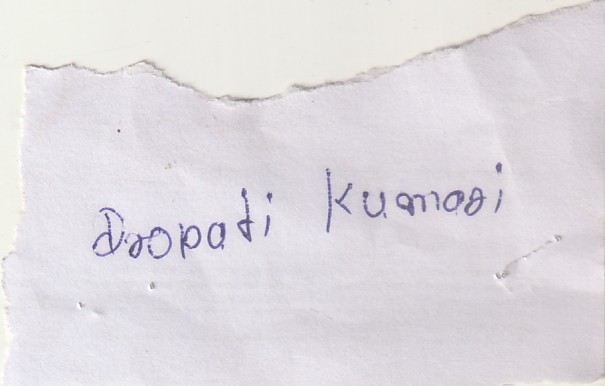 Dropati Kumari